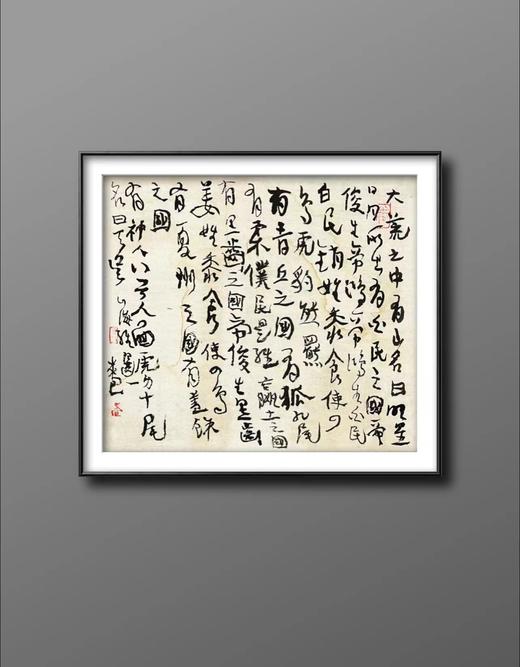 大荒之中有山名曰明星
日月所出有白民之國帝
俊生帝鴻帝鴻生白民
白民銷姓黍食使四
鳥虎豹熊羆
有青丘之國有狐九尾
有柔僕民是維嬴土之國
有黑齒之國帝俊生黑齒
姜姓黍食使四鳥
有夏州之國有蓋餘
之國
有神人八首人面虎身十尾
名曰天吳 山海經